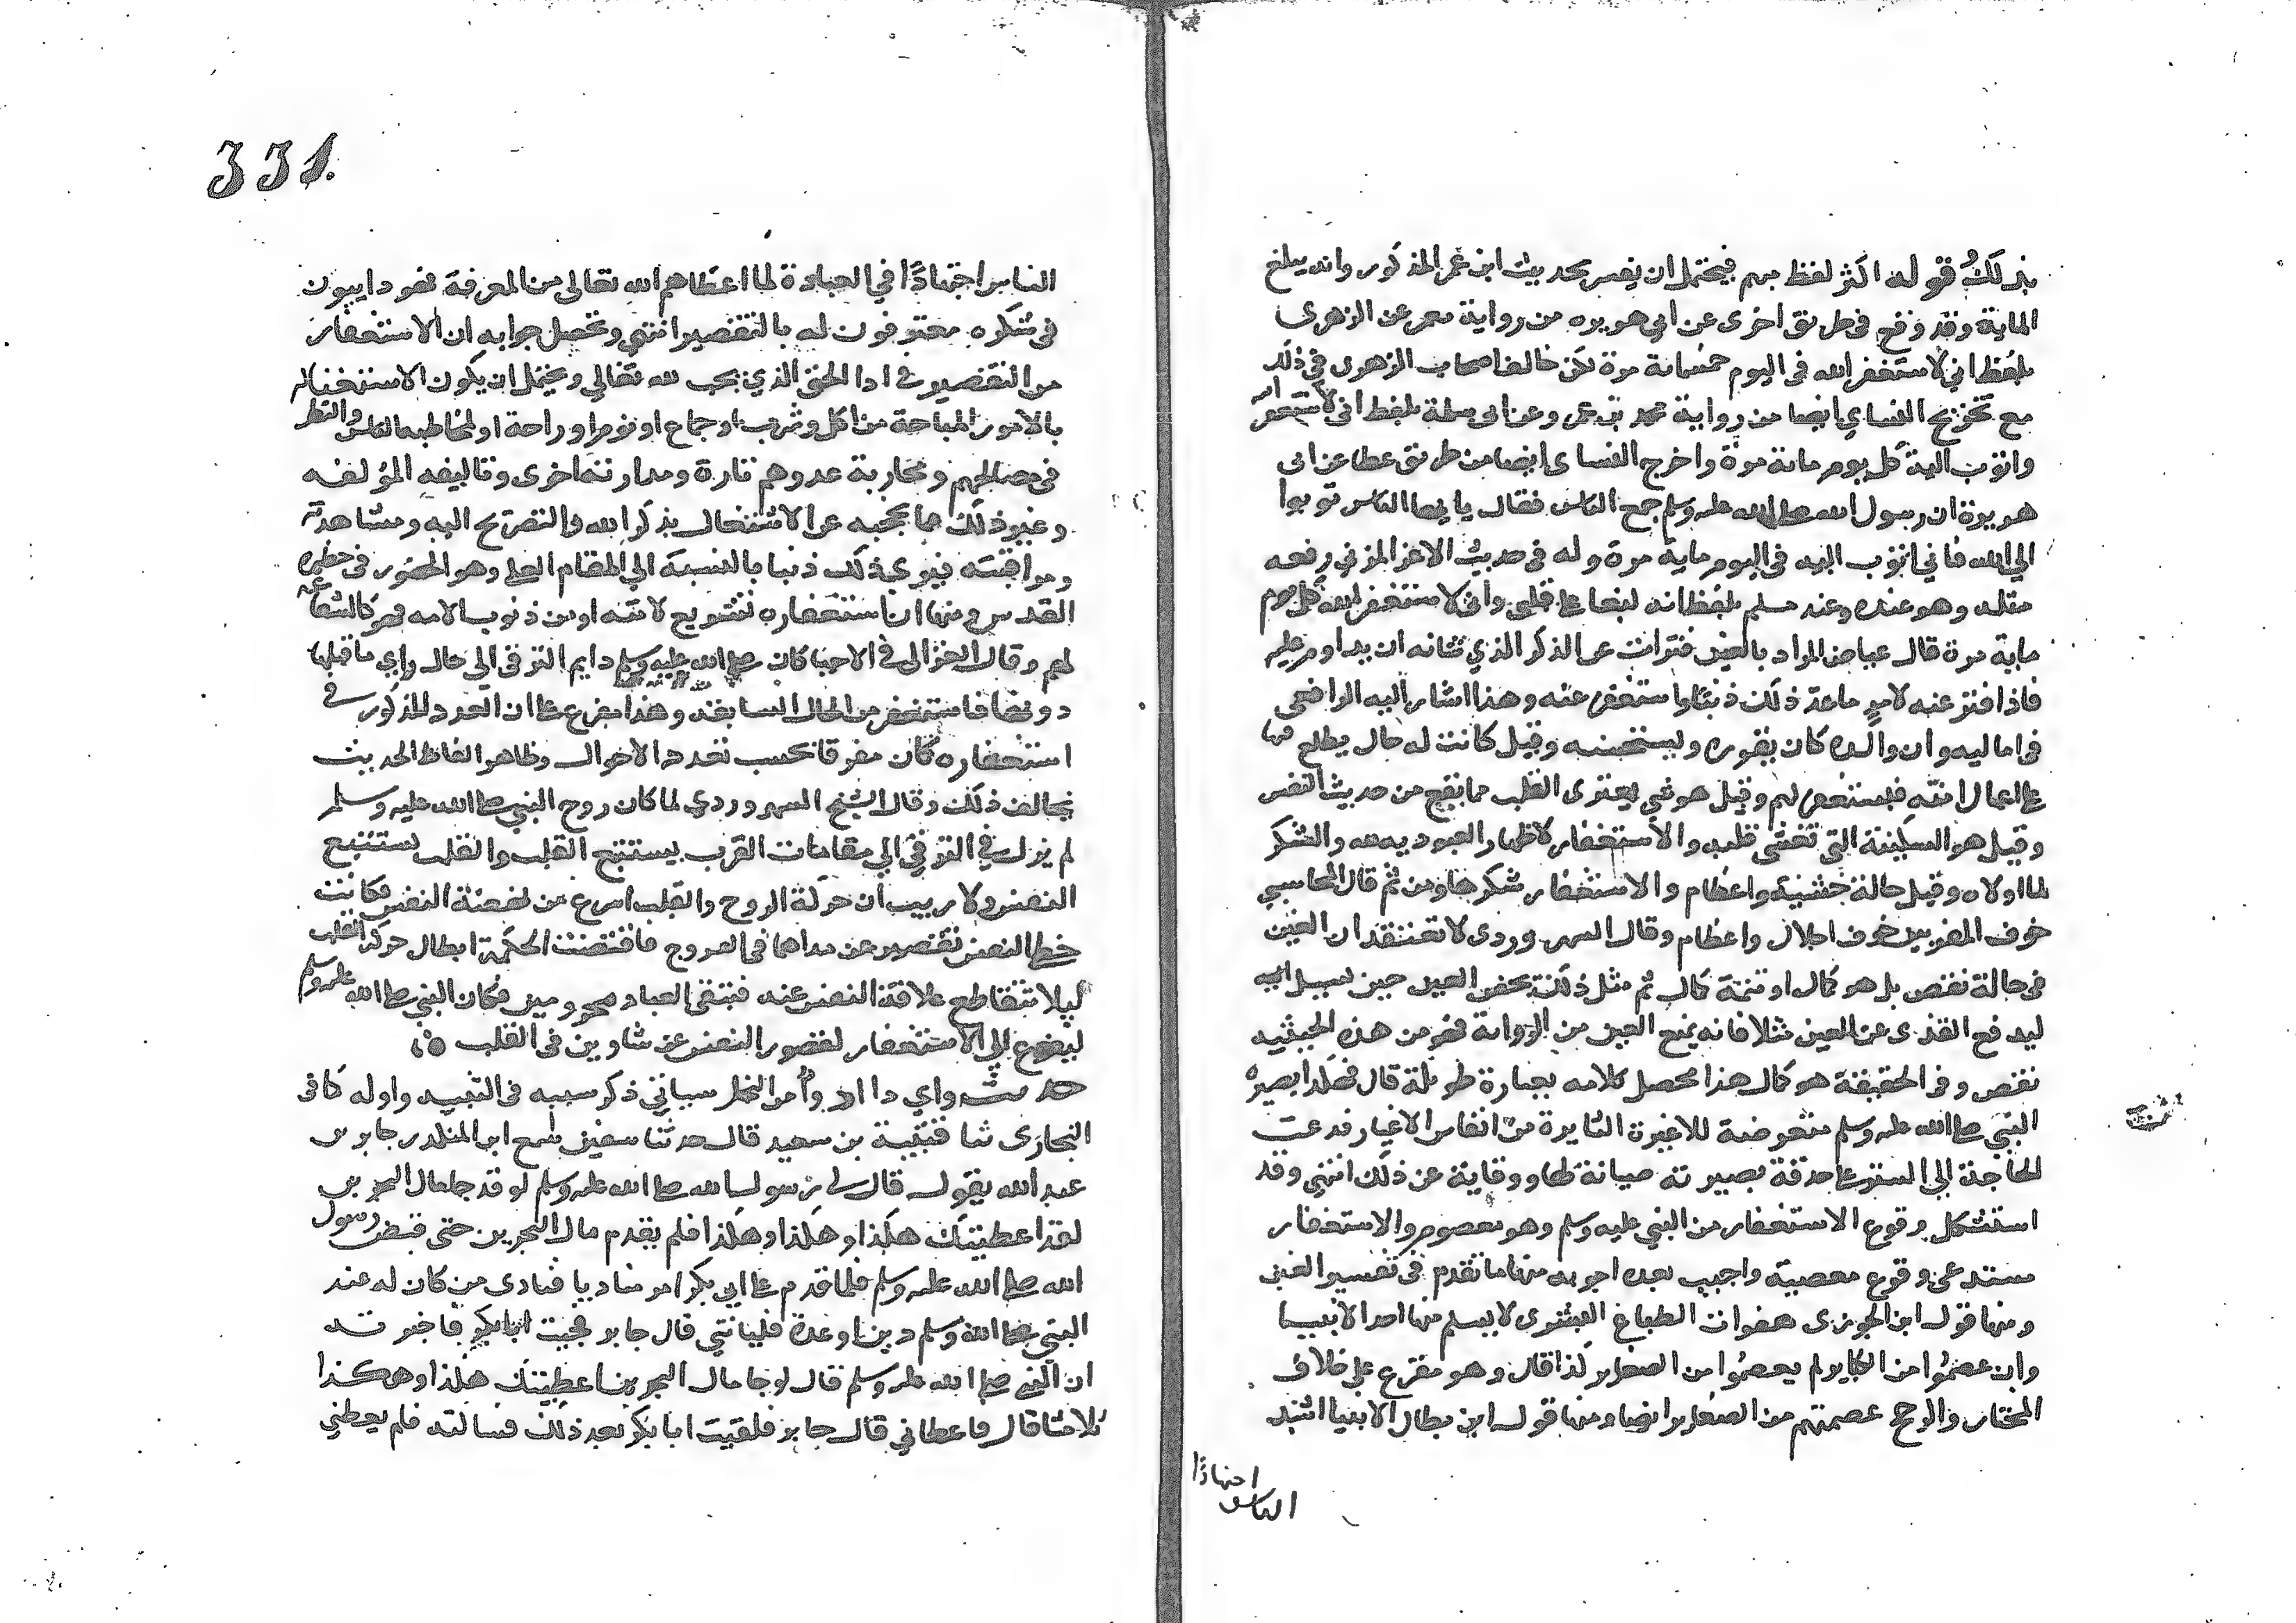 بذلك قوله اكثر لفظ مبهم فيحتمل ان يفسر بحديث ابن عمر المذكور وانه يبلغ
الماية وقد وقع في طريق اخرى عن ابي هريره من رواية معمر عن الزهرى
بلفظ اني لاستغفر الله فى اليوم خمسمائة مرة لكن خالف اصحاب الزهرى فى ذلك
مع تخريج النساي ايضا من رواية محمد بن عمرو عن ابى سلمة بلفظ انى لاستغفر الله
واتوب اليه كل يوم ماية مرة واخرج النساى ايضا من طريق عطا عن ابى
هريرة ان رسول الله صلى الله عليه وسلم جمع الناس فقال يا ايها الناس توبوا
الي الله فاني اتوب اليه فى اليوم ماية مرة وله فى حديث الاغر المزني رفعه
مثله وهو عنده وعند مسلم بلفظ انه ليغان على قلبى وانى لاستغفر الله كل يوم
ماية مرة قال عياض المراد بالغين فترات عن الذكر الذي شانه ان يداوم عليه
فاذا فتر عنه لامر ما عد ذلك ذنبا واستغفر عنه وهذا اشار اليه الرافعى
فى اماليه وان والده كان يقرره ويستحسنه وقيل كانت له حال يطلع فيها
على اعمال امته فيستغفر لهم وقيل هو شي يعترى القلب مما يقع من حديث النفس
وقيل هو السكينة التى تغشى قلبه والاستغفار لاظهار العبوديه لله والشكر
لما اولاه وقيل حالة خشية واعظام والاستغفار شكرها ومن ثم قال المحاسبي
خوف المقربين خوف اجلال واعظام وقال السهروردى لا تعتقد ان الغين
فى حالة نقص بل هو كمال او تتمة كمال ثم مثل ذلك بجفن العين حين يسيل
ليدفع القذى عن العين مثلا فانه يمنع العين من الروية فهو من هذه الحيثيه
نقص وفى الحقيقة هو كمال هذا محصل كلامه بعبارة طويلة قال فهكذا بصيرة
النبي صلى الله عليه وسلم متعرضة للاغيرة الثايرة من انفاس الاغيار فدعت
الحاجة الي الستر على حدقة بصيرته صيانة لها ووقاية عن ذلك انتهي وقد
استشكل وقوع الاستغفار من النبي عليه وسلم وهو معصوم والاستغفار
يستدعى وقوع معصية واجيب بعده اجوبه منها ما تقدم فى تفسير الغين
ومنها قول ابن الجوزى هفوات الطباع البشرى لا يسلم منها احد الانبيا
وان عصموا من الكباير لم يعصموا من الصغاير كذا قال وهو مفرع على خلاف
المختار والراجح عصمتهم من الصغاير ايضا ومنها قول ابن بطال الانبيا اشد
الناس اجتهادًا
الناس اجتهادًا في العبادة لما اعطاهم الله تعالى من المعرفة فهم دايبون
فى شكره معترفون له بالتقصير انتهي ومحصل جوابه ان الاستغفار
من التقصير فى ادا الحق الذي يجب لله تعالي ويحتمل ان يكون الاستغفار
بالامور المباحة من اكل وشرب او جماع او نوم او راحة او لمخاطبه الناس والنظر
فى مصالحهم ومحاربة عدوهم تارة ومداراته اخرى وتاليف المؤلفه
وغير ذلك مما يحجبه عن الاشتغال بذكر الله والتضرع اليه ومشاهدته
ومراقبته فيرى ذلك ذنبا بالنسبة الي المقام العلي وهو الحضور فى حظيرة
القدس ومنها ان استغفاره تشريع لامته او من ذنوب الامه فهو كالشفاعة
لهم وقال الغزالى فى الاحيا كان صلى الله عليه وسلم دايم الترقى فى الي حال راي ما قبلها
دونها فاستغفر من الحال السابقه وهذا مفرع على ان العدد المذكور فى
استغفاره كان مفرقا بحسب تعدد الاحوال وظاهر الفاظ الحديث
يخالف ذلك وقال الشيخ السهروردي لما كان روح النبي صلى الله عليه وسلم
لم يزل في الترقى الي مقامات القرب يستتبع القلب والقلب يستتبع
النفس ولا ريب ان حركة الروح والقلب اسرع من نهضة النفس فكانت
خطا النفس تقصر عن مداهما فى العروج فاقتضت الحكمة ابطال حركة القلب
ليلا تتقاطع علاقة النفس عنه فتبقى العباد محرومين فكان النبي صلى الله عليه وسلم
ليفزع الي الاستغفار لقصور النفس عن شاو ترقى القلب
حديث واي دا ادوا من البخل سياتي ذكر سببه فى التنبيه واوله كما فى
البخارى ثنا قتيبة بن سعيد قال حدثنا سفين سمع ابن المنكدر جابر بن
عبد الله يقول قال لى رسول الله صلى الله عليه وسلم لو قد جا مال البحرين
لقد اعطيتك هكذا وهكذا وهكذا فلم يقدم مال البحرين حتى قبض رسول
الله صلى الله عليه وسلم فلما قدم على ابي بكر امر مناديا فنادى من كان له عند
النبي صلى الله وسلم دين او عدة فلياتني قال جابر فجيت ابا بكر فاخبرته
ان النبي صلى الله عليه وسلم قال لو جا مال البحرين اعطيتك هكذا وهكذا
ثلاثا قال فاعطاني قال جابر فلقيت ابا بكر بعد ذلك فسالته فلم يعطني
331.